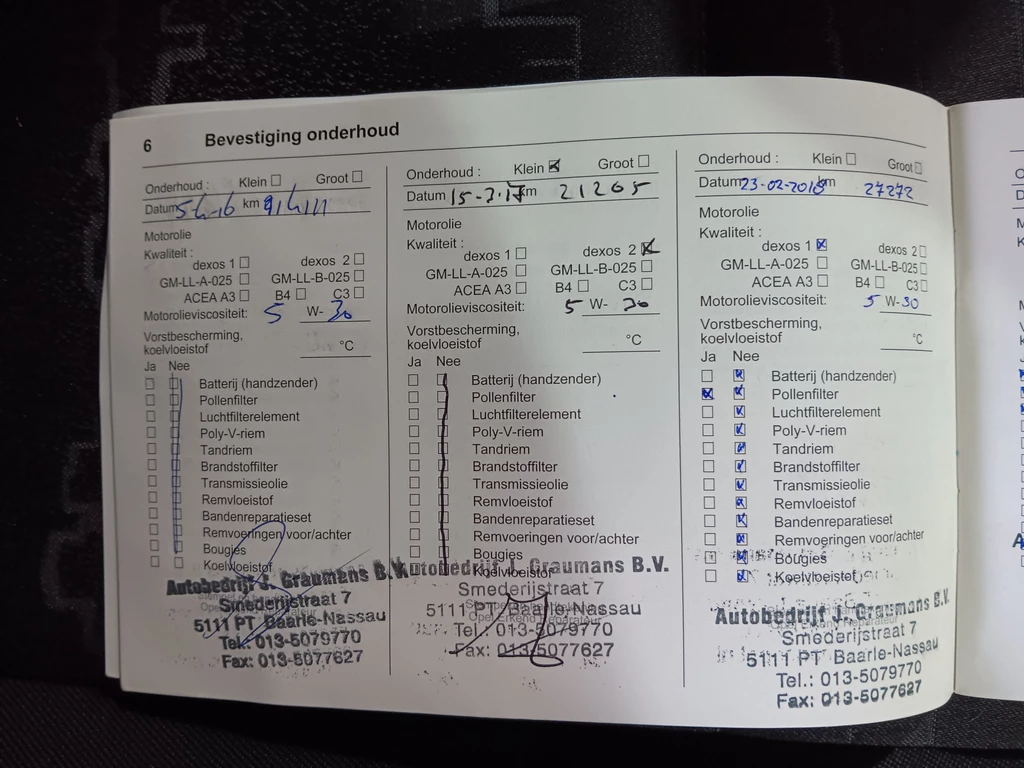 6 Bevestiging onderhoud
Onderhoud : Klein ☐ Groot ☐
Datum km
Motorolie
Kwaliteit :
dexos 1 ☐ dexos 2 ☐
GM-LL-A-025 ☐ GM-LL-B-025 ☐
ACEA A3 ☐ B4 ☐ C3 ☐
Motorolieviscositeit: 5 W- 30
Vorstbescherming,
koelvloeistof °C
Ja Nee
☐ ☐ Batterij (handzender)
☐ ☐ Pollenfilter
☐ ☐ Luchtfilterelement
☐ ☐ Poly-V-riem
☐ ☐ Tandriem
☐ ☐ Brandstoffilter
☐ ☐ Transmissieolie
☐ ☐ Remvloeistof
☐ ☐ Bandenreparatieset
☐ ☐ Remvoeringen voor/achter
☐ ☐ Bougies
☐ ☐ Koelvloeistof
Autobedrijf J. Graumans B.V.
Smederijstraat 7
5111 PT Baarle-Nassau
Tel.: 013-5079770
Fax: 013-5077627
Onderhoud : Klein ☒ Groot ☐
Datum 15-2-17 km 21265
Motorolie
Kwaliteit :
dexos 1 ☐ dexos 2 ☒
GM-LL-A-025 ☐ GM-LL-B-025 ☐
ACEA A3 ☐ B4 ☐ C3 ☐
Motorolieviscositeit: 5 W- 30
Vorstbescherming,
koelvloeistof °C
Ja Nee
☐ ☐ Batterij (handzender)
☐ ☐ Pollenfilter
☐ ☐ Luchtfilterelement
☐ ☐ Poly-V-riem
☐ ☐ Tandriem
☐ ☐ Brandstoffilter
☐ ☐ Transmissieolie
☐ ☐ Remvloeistof
☐ ☐ Bandenreparatieset
☐ ☐ Remvoeringen voor/achter
☐ ☐ Bougies
☐ ☐ Koelvloeistof
Autobedrijf J. Graumans B.V.
Smederijstraat 7
5111 PT Baarle-Nassau
Tel.: 013-5079770
Fax: 013-5077627
Onderhoud : Klein ☐ Groot ☐
Datum 23-02-2018 km 27272
Motorolie
Kwaliteit :
dexos 1 ☒ dexos 2 ☐
GM-LL-A-025 ☐ GM-LL-B-025 ☐
ACEA A3 ☐ B4 ☐ C3 ☐
Motorolieviscositeit: 5 W- 30
Vorstbescherming,
koelvloeistof °C
Ja Nee
☐ ☒ Batterij (handzender)
☒ ☒ Pollenfilter
☐ ☒ Luchtfilterelement
☐ ☒ Poly-V-riem
☐ ☒ Tandriem
☐ ☒ Brandstoffilter
☐ ☒ Transmissieolie
☐ ☒ Remvloeistof
☐ ☒ Bandenreparatieset
☐ ☒ Remvoeringen voor/achter
☐ ☒ Bougies
☐ ☒ Koelvloeistof
Autobedrijf J. Graumans B.V.
Smederijstraat 7
5111 PT Baarle-Nassau
Tel.: 013-5079770
Fax: 013-5077627